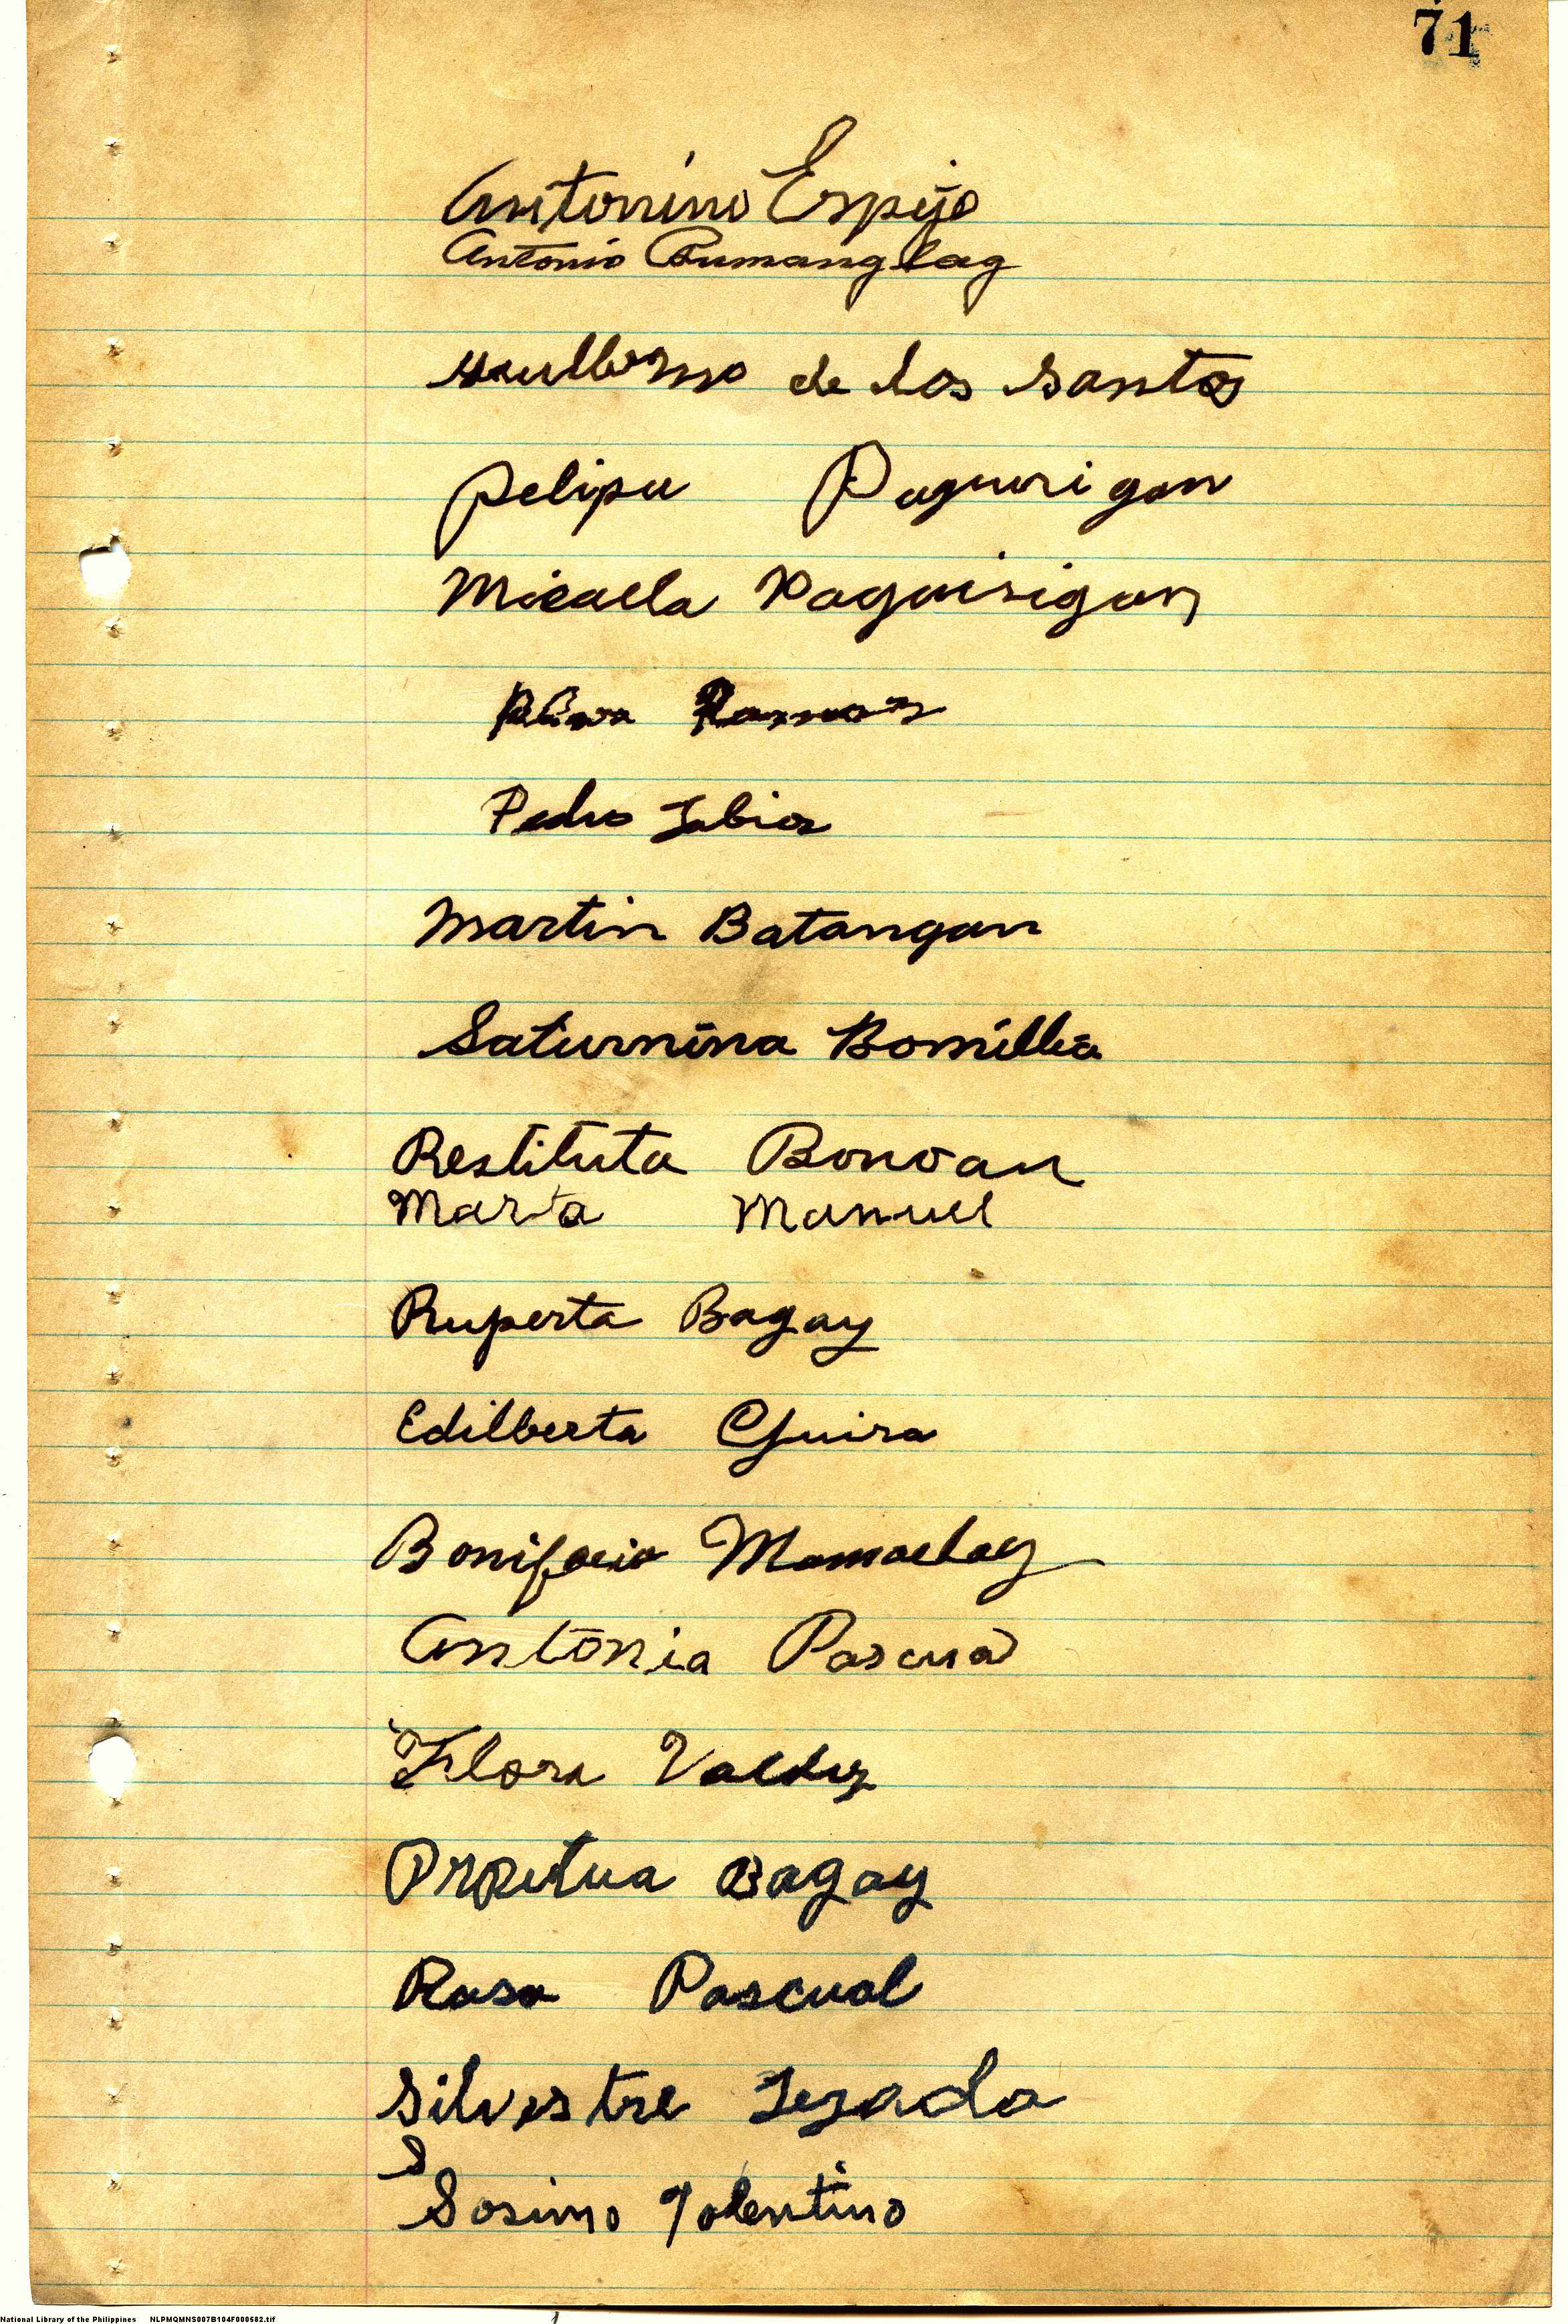 71
Antonino Espejo
Antonio Dumanglag
Guillermo de los Santos
Pelipa Paguirigan
Micaela Paguirigan
Ramos
Pedro Tabios
Martin Batangan
Saturnina Bomilla
Restituta Bonoan
Marta Manuel
Ruperta Bagay
Edilberta Guira
Bonifacio Mamaclay
Antonia Pascua
Flora Valdez
Prpetua Bagay
Rosa Pascual
Silvestre Tesada
S
Sosimo Tolentino
National Library of the Philippines NLPMQMNS007B104F000582.tif